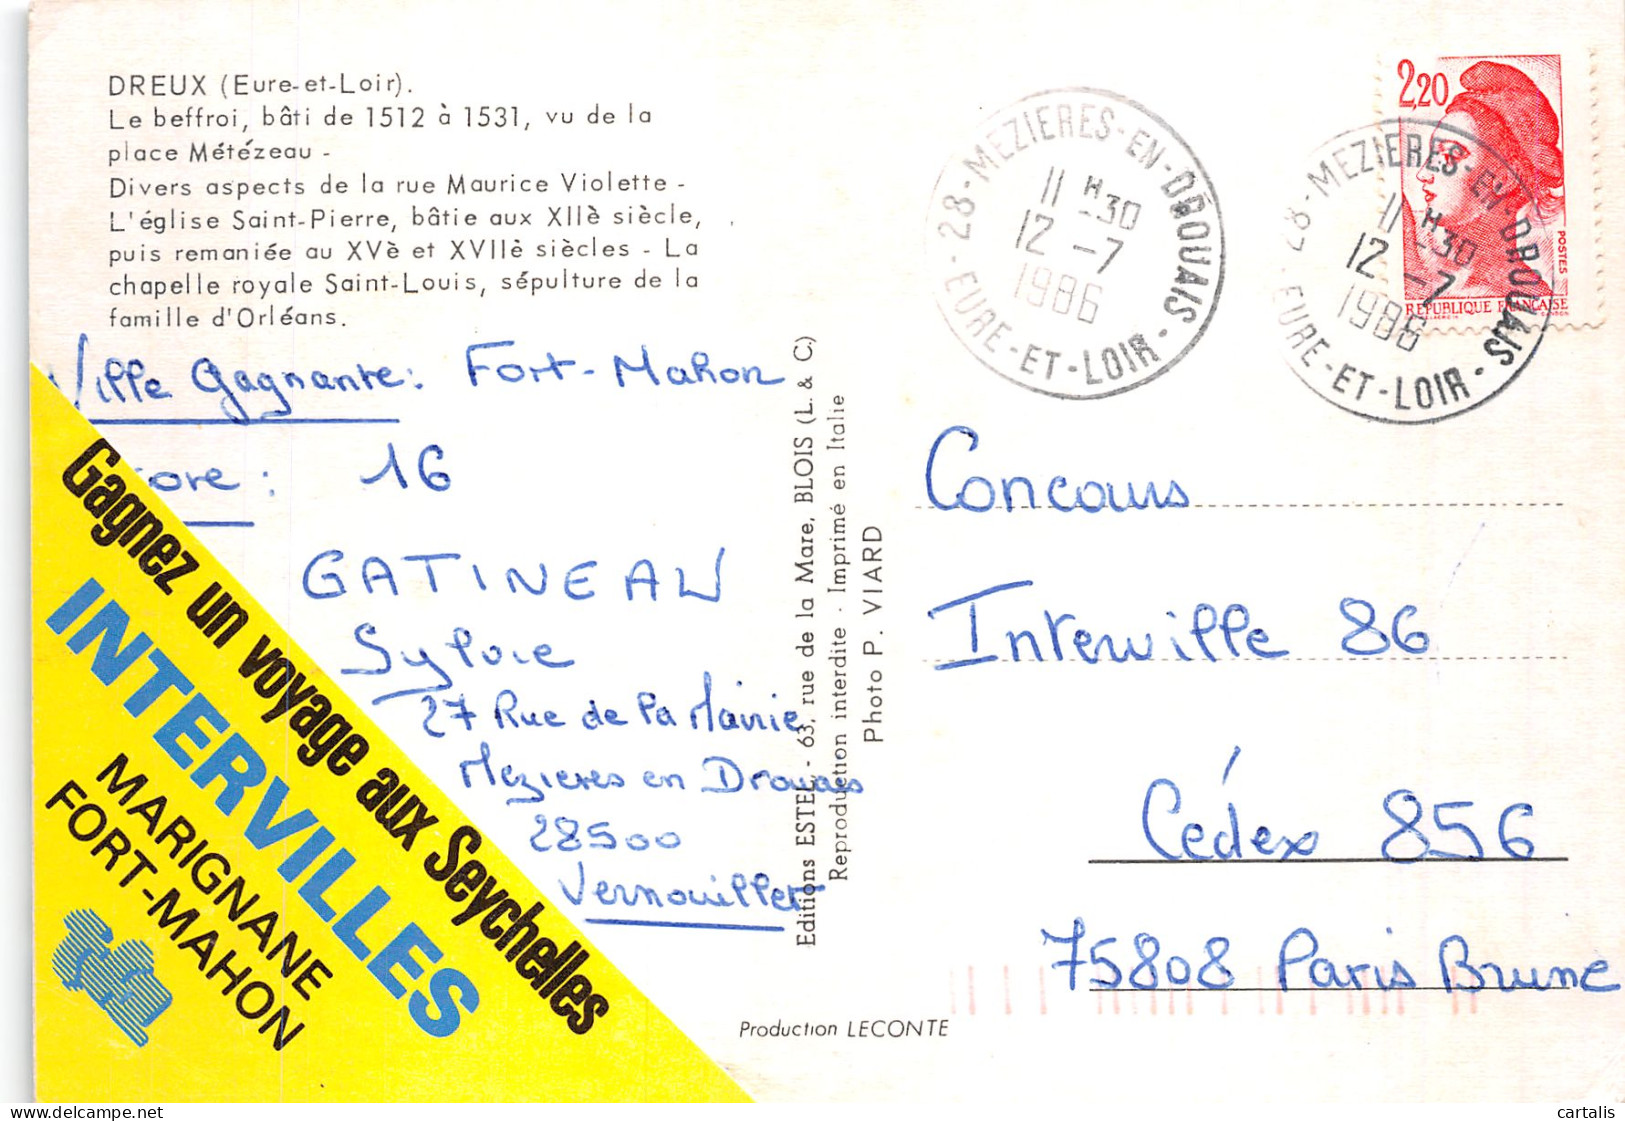 DREUX (Eure-et-Loir).
Le beffroi, bâti de 1512 à 1531, vu de la
place Métézeau -
Divers aspects de la rue Maurice Violette -
L'église Saint-Pierre, bâtie aux XIIè siècle,
puis remaniée au XVè et XVIIè siècles - La
chapelle royale Saint-Louis, sépulture de la
famille d'Orléans.
Ville Gagnante : Fort-Mahon
ore : 16
GATINEAU
Sylvie
27 Rue de la Mairie
Mezieres en Drouais
28500
Vernouillet
Gagnez un voyage aux Seychelles
INTERVILLES
MARIGNANE
FORT-MAHON
Editions ESTEL - 63, rue de la Mare, BLOIS (L. & C)
Reproduction interdite - Imprimé en Italie
Photo P. VIARD
Production LECONTE
28-MEZIERES-EN-DROUAIS
11 H 30
12-7
1986
EURE-ET-LOIR
2,20
POSTES
REPUBLIQUE FRANÇAISE
28-MEZIERES-EN-DROUAIS
11 H 30
12-7
1986
EURE-ET-LOIR
Concours
Interville 86
Cédex 856
75808 Paris Brune
cartalis